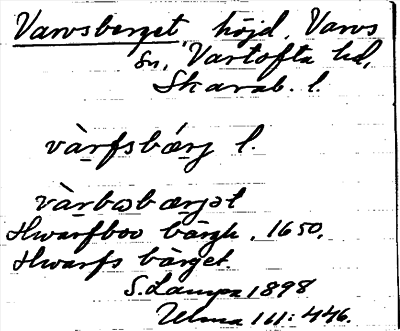 Varvsberget, höjd, Varvs
sn, Vartofta hd,
Skarab. l.
vàrfsbǽrj l.
vàrbosbærjət
Hwarfboo bärgh, 1650,
Hwarfs bärget.
S. Lampa 1898
Ulma 161: 446.